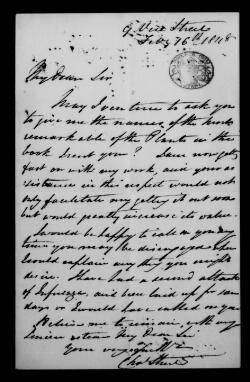 Street
Feby 16th 1848
My Dear Sir
May I venture to ask you
to give me the names of the most
remarkable of the Plants in the
book I sent you? I am now getting
fast on with my work, and your as
sistance in this respect would not
only facilitate my getting it out soon
but would greatly increase its value.
I would be happy to call on you any
time you may be disengaged when
I would explain any thing you might
desire. I have had a second attack
of Influenza, and been laid up for some
days or I would have called on you
Believe me to remain with very
sincere esteem My Dear Sir
Your very
Chas